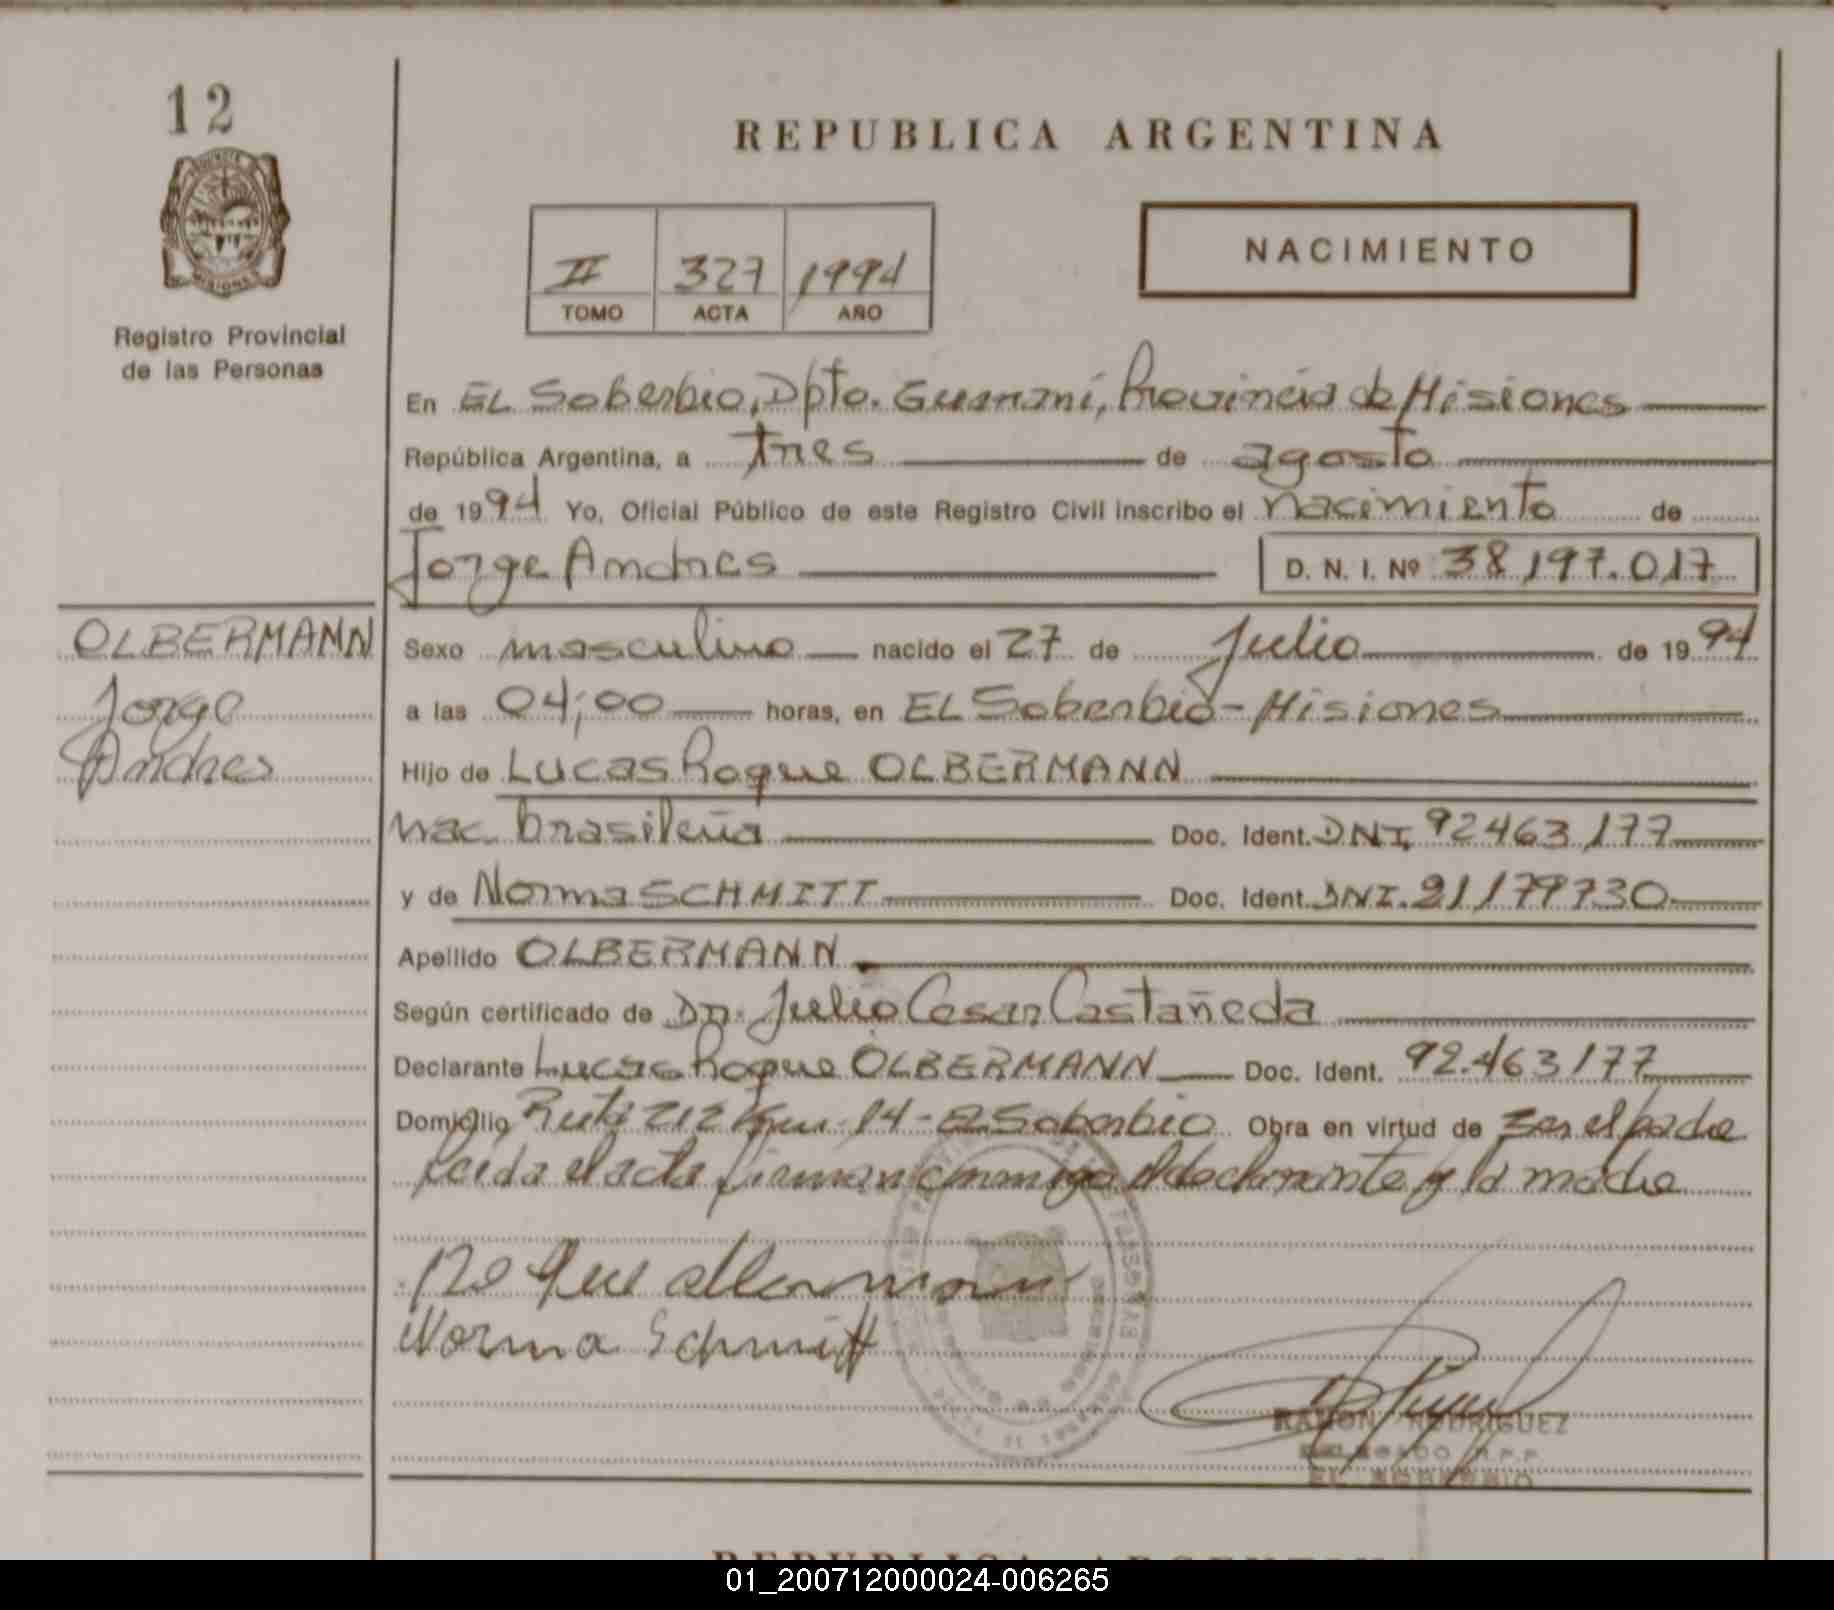 12
REPUBLICA ARGENTINA
NACIMIENTO
II 327 1994
TOMO ACTA AÑO
Registro Provincial
de las Personas
En EL Soberbio, Dpto. Guaraní, Provincia de Misiones
República Argentina, a tres de agosto
de 1994 Yo, Oficial Público de este Registro Civil inscribo el nacimiento de
Jorge Andres D. N. I. Nº 38,197.017
OLBERMANN
Jorge
Andres
Sexo masculino nacido el 27 de Julio de 1994
a las 04;00 horas, en EL Soberbio - Misiones
Hijo de Lucas Roque OLBERMANN
nac. brasileña Doc. Ident. DNI. 92463,177
y de Norma SCHMITT Doc. Ident. DNI. 21,179730
Apellido OLBERMANN
Según certificado de Dr. Julio Cesar Castañeda
Declarante Lucas Roque OLBERMANN Doc. Ident. 92.463,177
Domicilio Ruta 212 Km 14 - El Soberbio Obra en virtud de ser el padre
Leida el acta firman conmigo el declarante y la madre
Roque olbermann
Norma Schmitt
RAMON RODRIGUEZ
DELEGADO R.P.P.
EL SOBERBIO
REPUBLICA ARGENTINA
01_200712000024-006265